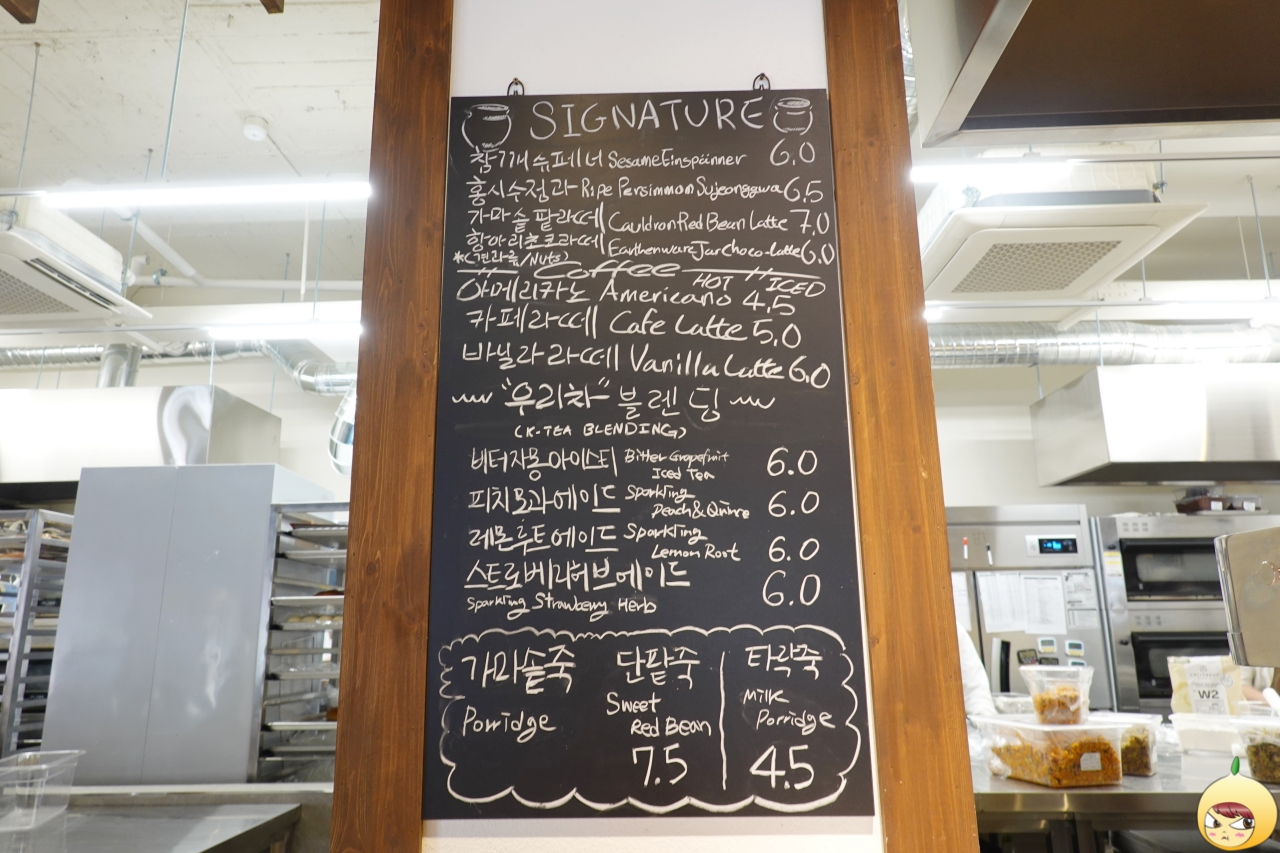 SIGNATURE
참깨슈페너 Sesame Einspänner 6.0
홍시수정과 Ripe Persimmon Sujeonggwa 6.5
가마솥팥라떼 Cauldron Red Bean Latte 7.0
항아리쵸코라떼 Earthenware Jar Choco-latte 6.0
*(견과류/Nuts)
Coffee HOT / ICED
아메리카노 Americano 4.5
카페라떼 Cafe Latte 5.0
바닐라라떼 Vanilla Latte 6.0
"우리차" 블렌딩
(K-TEA BLENDING)
비터자몽아이스티 Bitter Grapefruit Iced Tea 6.0
피치모과에이드 Sparkling Peach & Quince 6.0
레몬루트에이드 Sparkling Lemon Root 6.0
스트로베리허브에이드 6.0
Sparkling Strawberry Herb
가마솥죽 단팥죽 타락죽
Porridge Sweet Red Bean Milk Porridge
7.5 4.5
W2